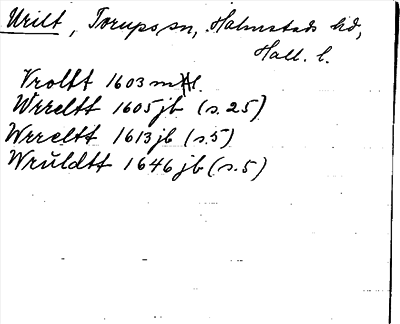 Urilt, Torups sn, Halmstads hd,
Hall. l.
Vrolft 1603 mtl.
Wrreltt 1605 jb (s. 25)
Wrreltt 1613 jb (s. 5)
Wruldtt 1646 jb (s. 5)